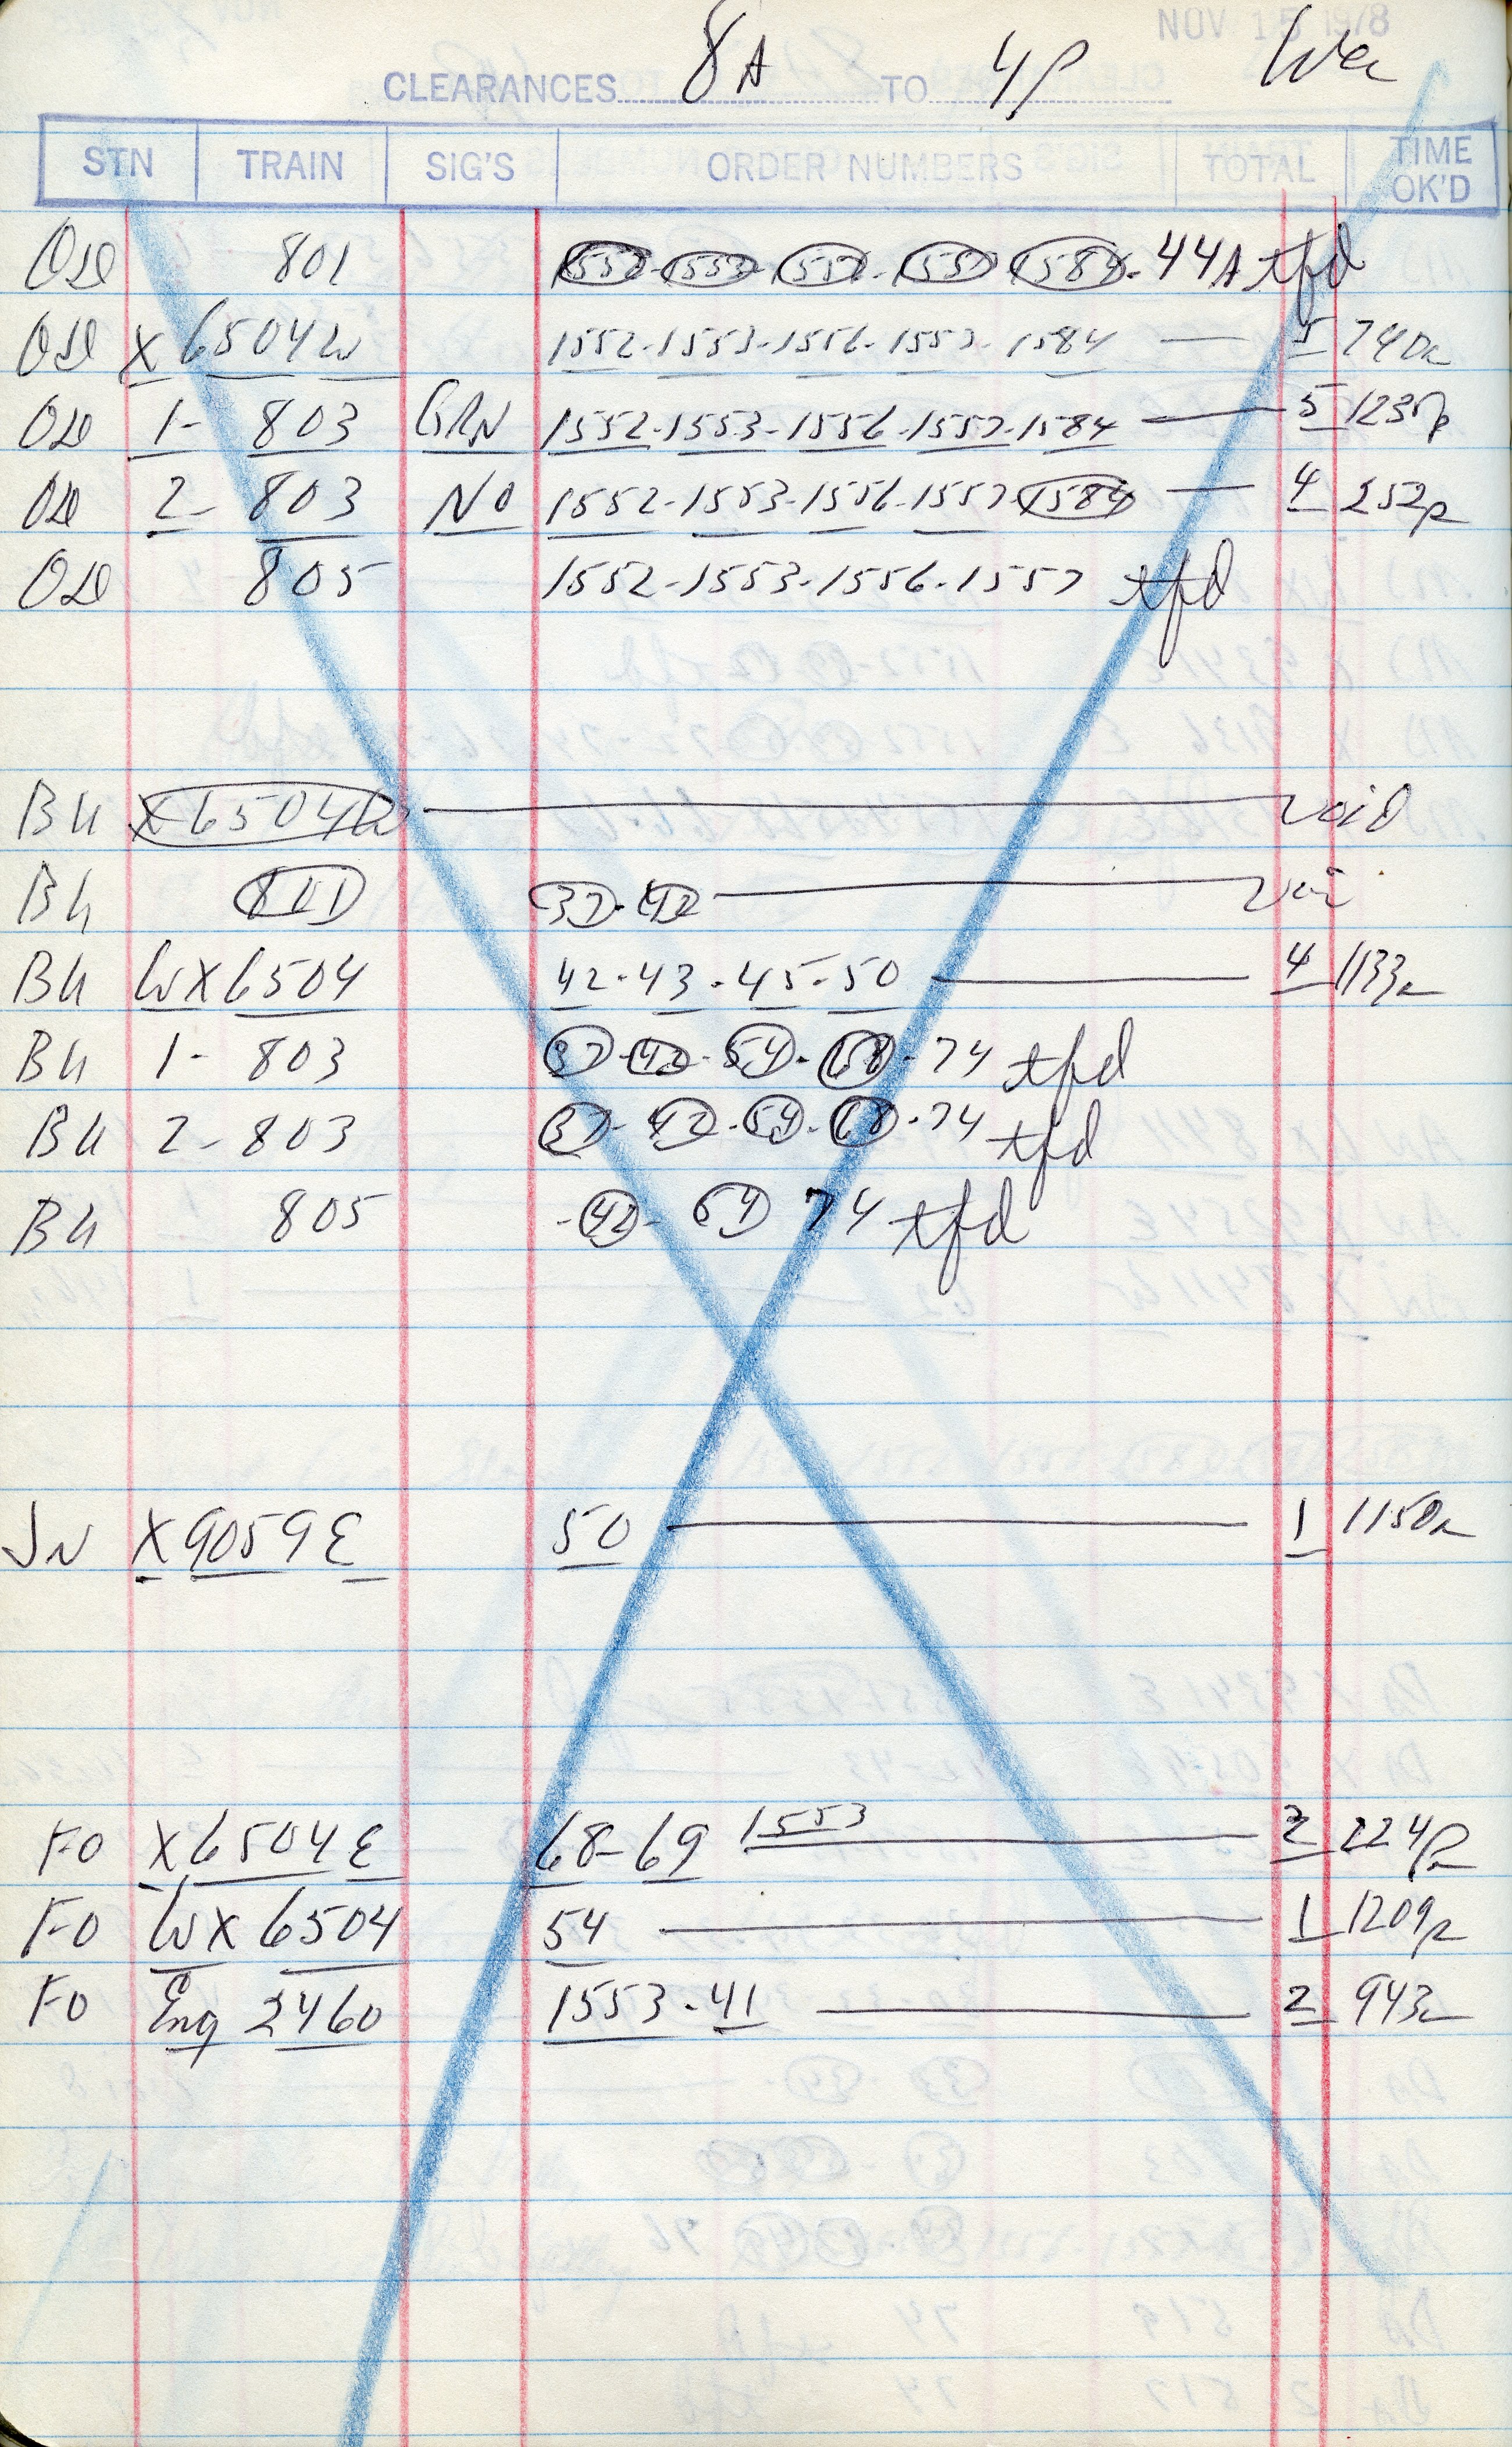 NOV 15 1978
CLEARANCES 8A TO 4P
STN TRAIN SIG'S ORDER NUMBERS TOTAL TIME OK'D
801 1552-1553-1557-1557-1584-44A tfd
X6504W 1552-1553-1556-1557-1584 — 5 740a
1- 803 GRN 1552-1553-1556-1557-1584 — 5 1237p
2- 803 NO 1552-1553-1556-1557-1584 — 4 252p
805 1552-1553-1556-1557 tfd
BU X6504W — void
BU 801 37-42 —
BU WX6504 42-43-45-50 — 4 1133a
BU 1- 803 37-42-54-68-74 tfd
BU 2-803 37-42-54-68-74 tfd
BU 805 -42-54 74 tfd
JN X9059E 50 — 1 1150a
FO X6504E 68-69 1553 — 2 224p
FO WX 6504 54 — 1 1209p
FO Eng 2460 1553-41 — 2 943a